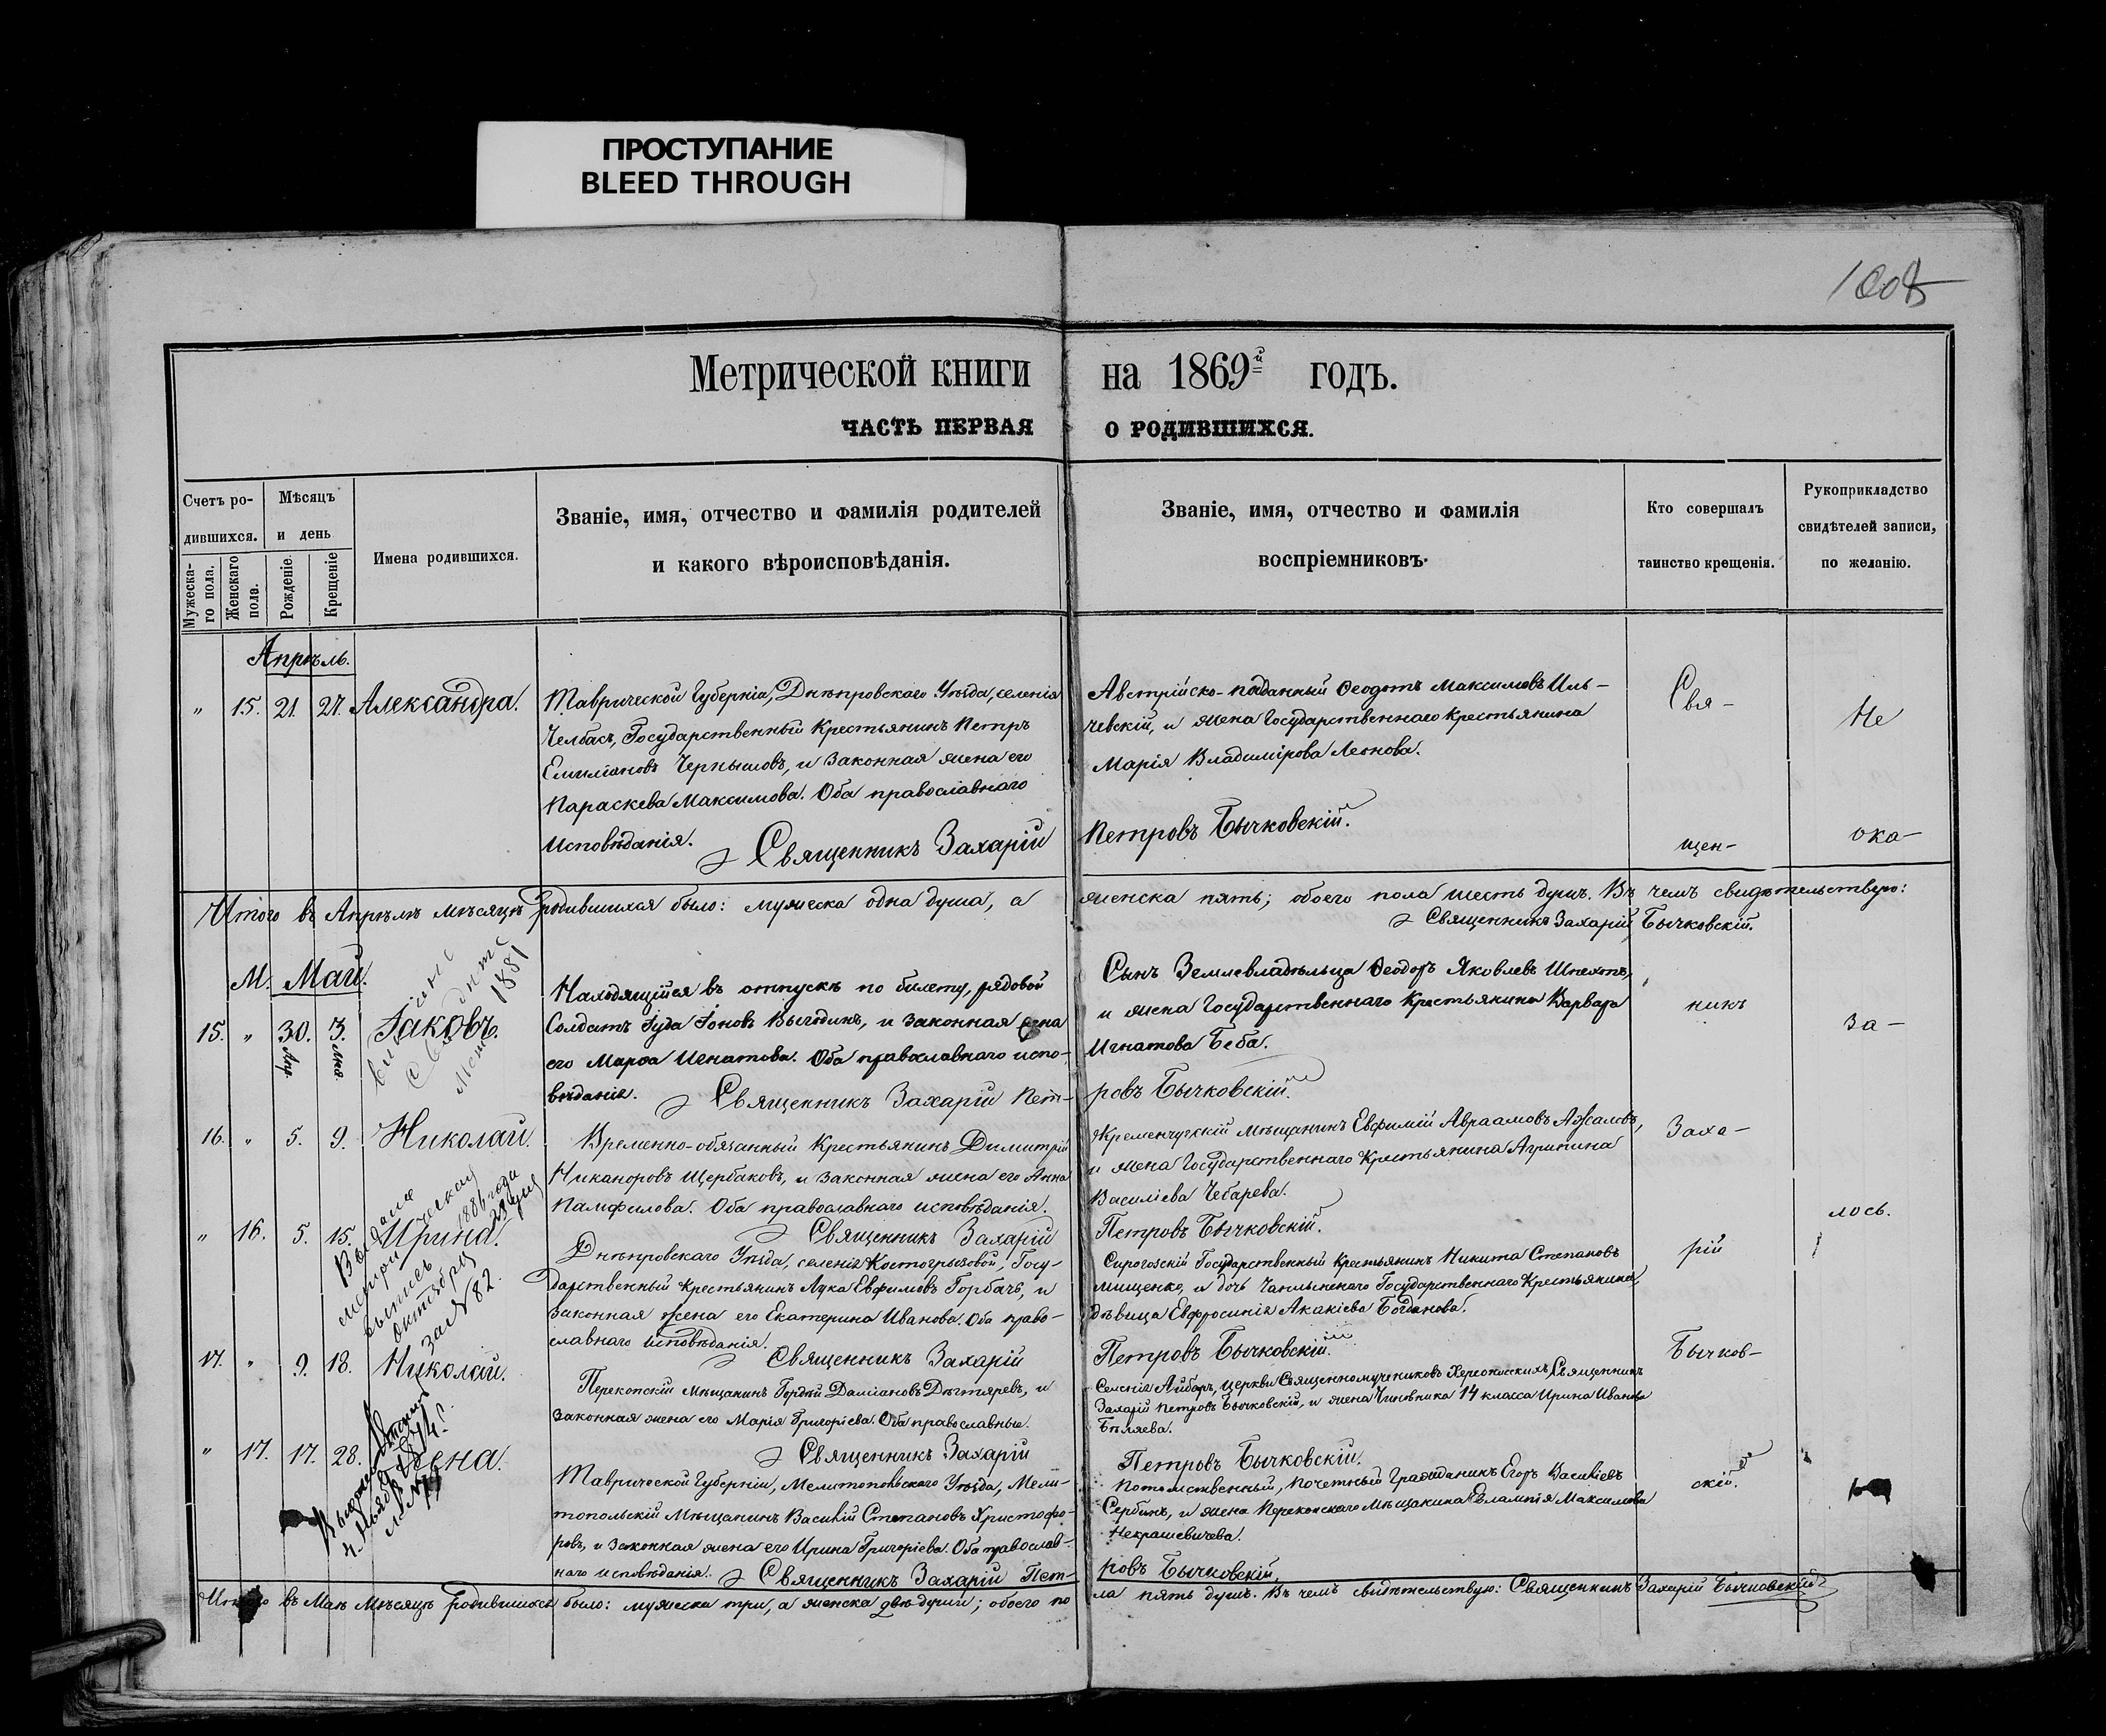 ПРОСТУПАНИЕ
BLEED THROUGH
Метрической книги на 1869й годъ.
ЧАСТЬ ПЕРВАЯ О РОДИВШИХСЯ.
Счетъ ро-
дившихся.
Мужеска-
го пола.
Женскаго
пола.
Мѣсяцъ
и день
Рожденіе.
Крещеніе
Имена родившихся.
Званіе, имя, отчество и фамилія родителей
и какого вѣроисповѣданія.
Званіе, имя, отчество и фамилія
воспріемниковъ.
Кто совершалъ
таинство крещенія.
Рукоприкладство
свидѣтелей записи,
по желанію.
Апрѣль.
" 15. 21. 27. Александра.
Таврической Губерніи, Днѣпровскаго Уѣзда, селенія
Челбасъ, Государственный Крестьянинъ Петръ
Емиліановъ Чернышовъ, и законная жена его
Параскева Максимова. Оба православнаго
Исповѣданія. Священникъ Захарій
Австрійско-подданный Ѳеодотъ Максимовъ Иль-
чевскій, и жена Государственнаго Крестьянина
Марія Владимірова Леонова.
Петровъ Бычковскій.
Свя-
щен-
Не
ока-
Итого въ Апрѣлѣ мѣсяцѣ родившихся было: мужеска одна душа, а женска пять; обоего пола шесть душъ. Въ чемъ свидѣтельствую:
Священникъ Захарій Бычковскій.
М. Май.
15. " 30. 3. Іаковъ.
Апр. Мая.
1881
Находящійся въ отпускѣ по билету, рядовой
Солдатъ Іуда Іоновъ Выгодинъ, и законная жена
его Марѳа Игнатова. Оба православнаго испо-
вѣданія. Священникъ Захарій Пет-
Сынъ Землевладѣльца Ѳеодоръ Яковлевъ Шпехтъ,
и жена Государственнаго Крестьянина Варвара
Игнатова Беба.
ровъ Бычковскій.
никъ
за-
16. " 5. 9. Николай.
Временно-обязанный Крестьянинъ Димитрій
Никаноровъ Щербаковъ, и законная жена его Анна
Памфилова. Оба православнаго исповѣданія.
Священникъ Захарій
Кременчугскій мѣщанинъ Евфимій Авраамовъ Ажсаловъ,
и жена Государственнаго Крестьянина Агрипина
Василіева Чебарева.
Петровъ Бычковскій.
Заха-
лось.
" 16. 5. 15. Ирина.
Выдана
1886 года
октября
за № 82.
Днѣпровскаго Уѣзда, селенія Костогрызовой, Госу-
дарственный Крестьянинъ Лука Евфимовъ Горбачъ, и
законная жена его Екатерина Иванова. Оба право-
славнаго исповѣданія.
Священникъ Захарій
Сирогозскій Государственный Крестьянинъ Никита Степановъ
Мищенко, и дочь Чаплынскаго Государственнаго Крестьянина,
дѣвица Евфросинія Акакіева Богданова.
Петровъ Бычковскій.
рій
17. " 9. 18. Николай.
Перекопскій Мѣщанинъ Гордѣй Даміановъ Дѣгтяревъ, и
законная жена его Марія Григоріева. Оба православные.
Священникъ Захарій
Селенія Айбаръ, церкви Священномучениковъ Херсонскихъ, Священникъ
Захарій Петровъ Бычковскій, и жена Чиновника 14 класса Ирина Иванова
Бѣляева.
Петровъ Бычковскій.
Бычков-
" 17. 17. 28. Елена.
Таврической Губерніи, Мелитопольскаго Уѣзда, Мели-
топольскій Мѣщанинъ Василій Степановъ Христофо-
ровъ, и законная жена его Ирина Григоріева. Оба православ-
наго исповѣданія. Священникъ Захарій Пет-
Потомственный, Почетный Гражданинъ Егоръ Василіевъ
Сербинъ, и жена Перекопскаго Мѣщанина Евлампія Максимова
Некрашевичева.
ровъ Бычковскій.
скій.
Итого въ Маѣ Мѣсяцѣ родившихся было: мужеска три, а женска двѣ души; обоего по ла пять душъ. Въ чемъ свидѣтельствую: Священникъ Захарій Бычковскій